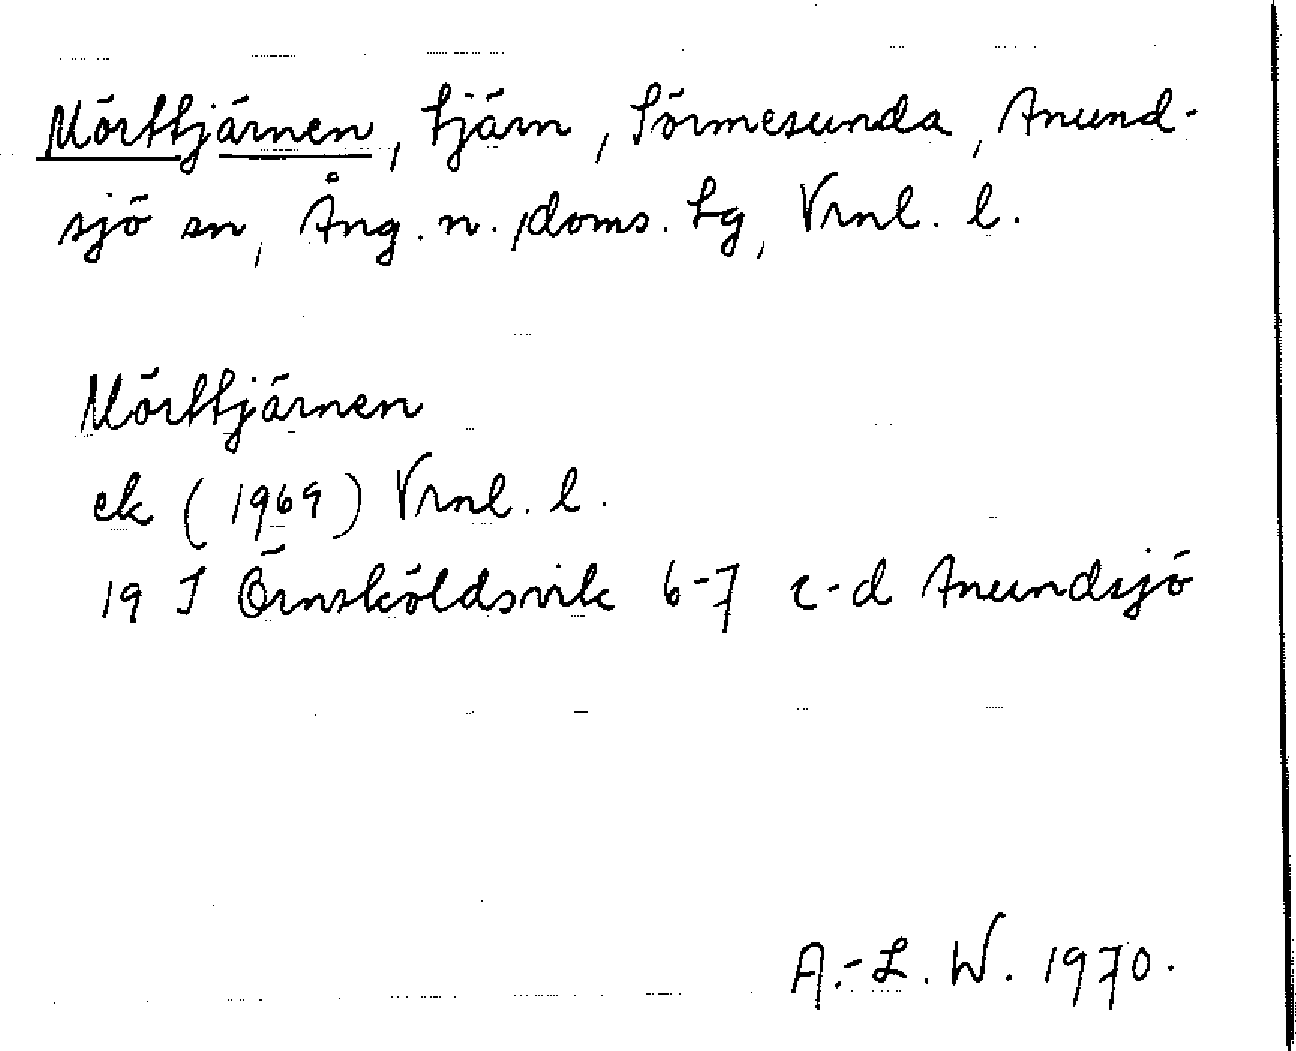 Mörttjärnen, tjärn, Sörmesunda, Anund-
sjö sn, Ång. n. doms. lg, Vrnl. l.
Mörttjärnen
ek (1969) Vrnl. l.
19 J Örnsköldsvik 6-7 c-d Anundsjö
A.-L. W. 1970.